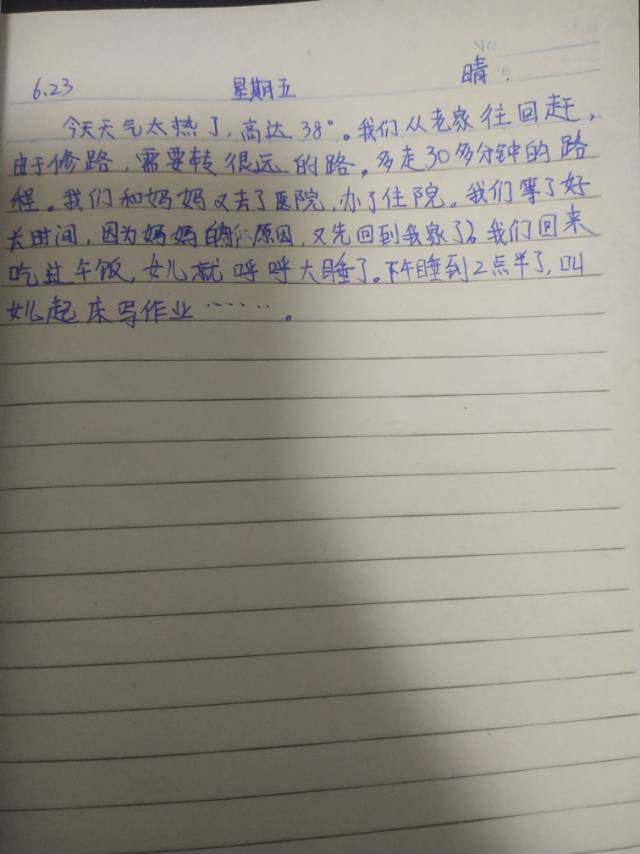 6.23 星期五 晴.
今天天气太热了,高达38°。我们从老家往回赶,
由于修路,需要转很远的路。多走30多分钟的路
程。我们和妈妈又去了医院,办了住院。我们等了好
长时间,因为妈妈的原因,又先回到我家了。我们回来
吃过午饭,女儿就呼呼大睡了。下午睡到2点半了,叫
女儿起床写作业……。